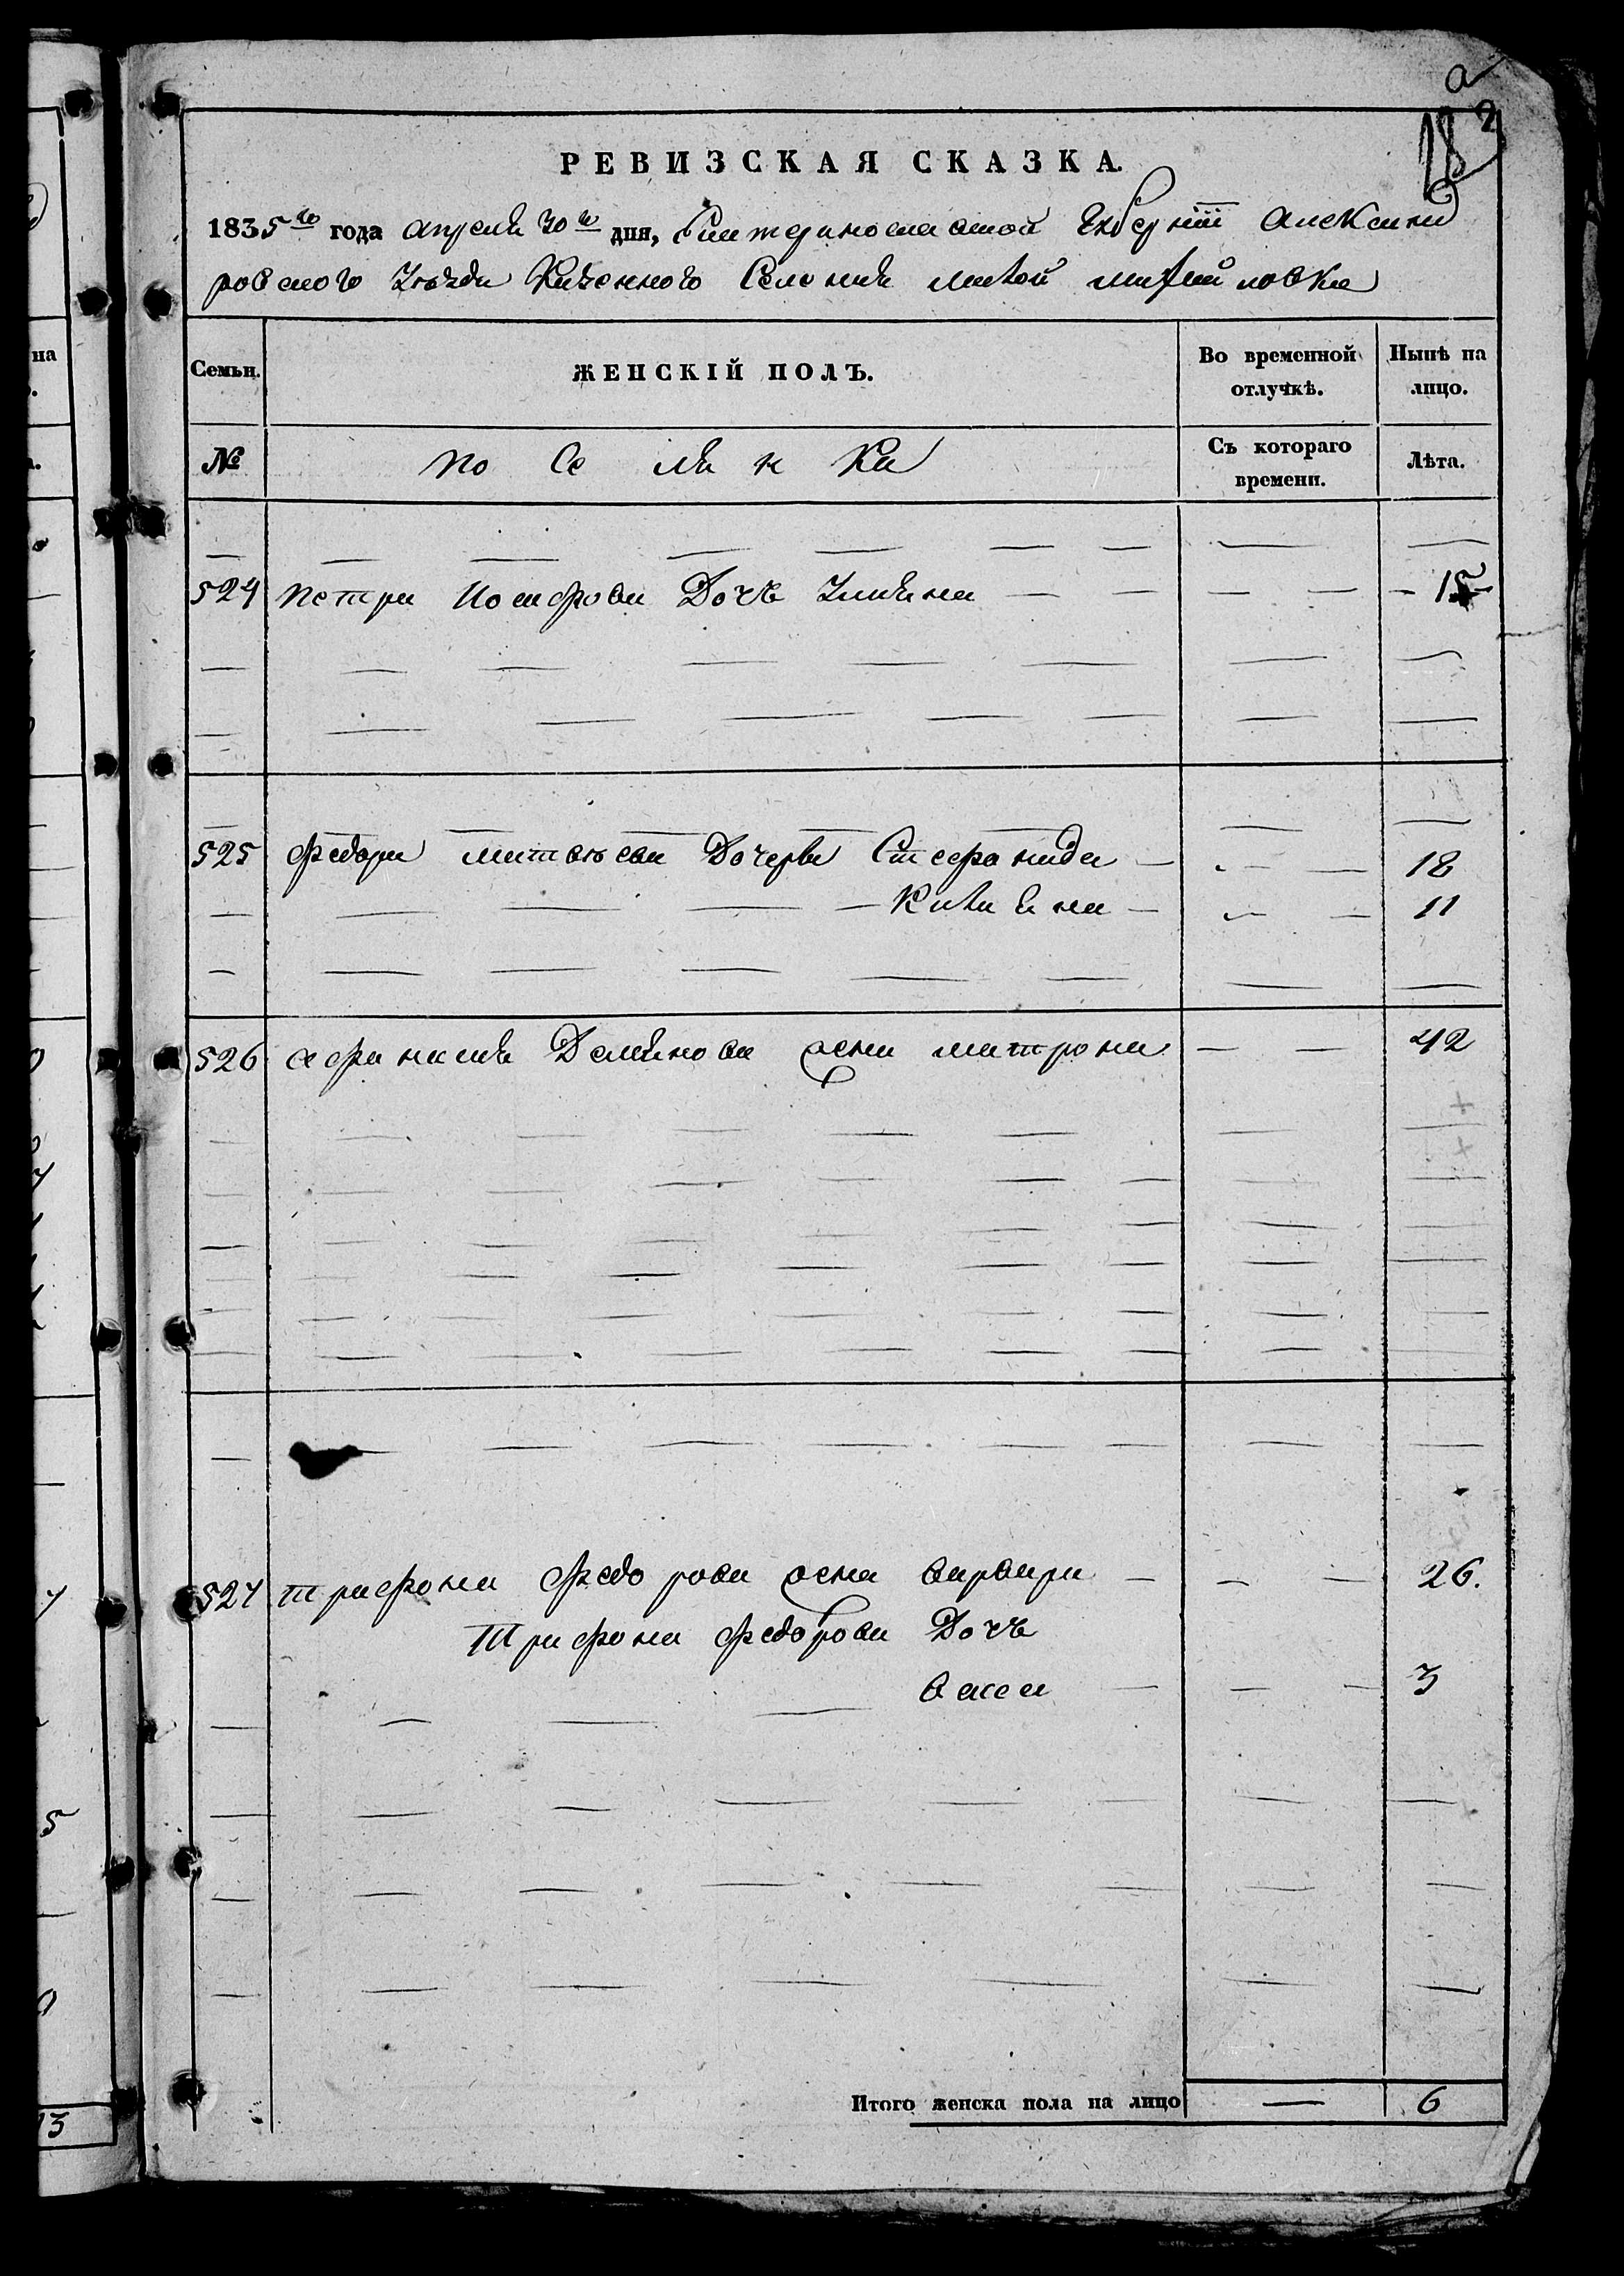 РЕВИЗСКАЯ СКАЗКА.
1835го года апреля 30го дня, Екатеринославской Губернии Александ
ровского Уезда Казенного Селения малой михайловки
Семьи. ЖЕНСКІЙ ПОЛЪ. Во временной отлучкѣ. Нынѣ на лицо.
№ по Се ля н ка Съ котораго времени. Лѣта.
524 петра Иосифова Дочь Улияна 15
525 федора матвѣева Дочерви Стефанида 18
11
526 афанасия Демянова жена матрона 42
527 трифона Федорова жена варвара 26.
Трифона федорова Дочь
васса 3
Итого женска пола на лицо 6